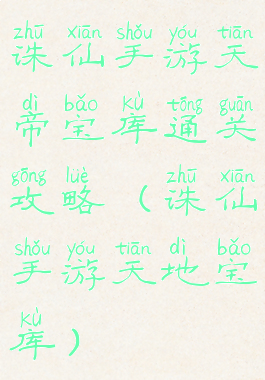 zhū xiān shǒu yóu tiān
诛仙手游天
dì bǎo kù tōng guān
帝宝库通关
gōng lüè zhū xiān
攻略（诛仙
shǒu yóu tiān dì bǎo
手游天地宝
kù
库）